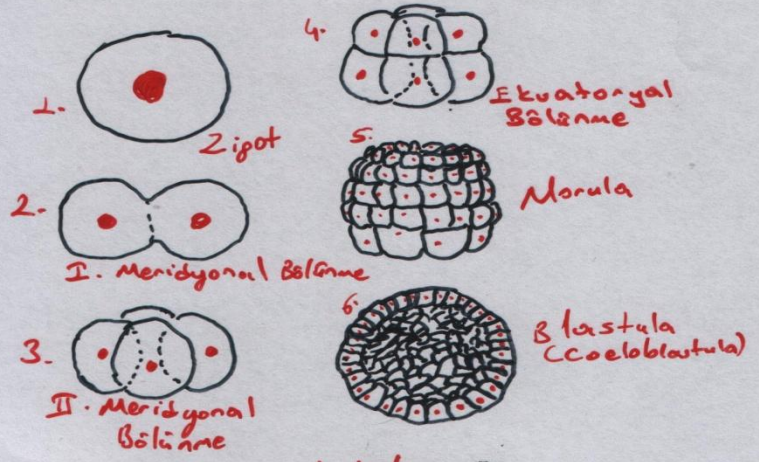 1.
Zigot
2.
I. Meridyonal Bölünme
3.
II. Meridyonal
Bölünme
4.
Ekvatoryal
Bölünme
5.
Morula
6.
Blastula
(Coeloblastula)